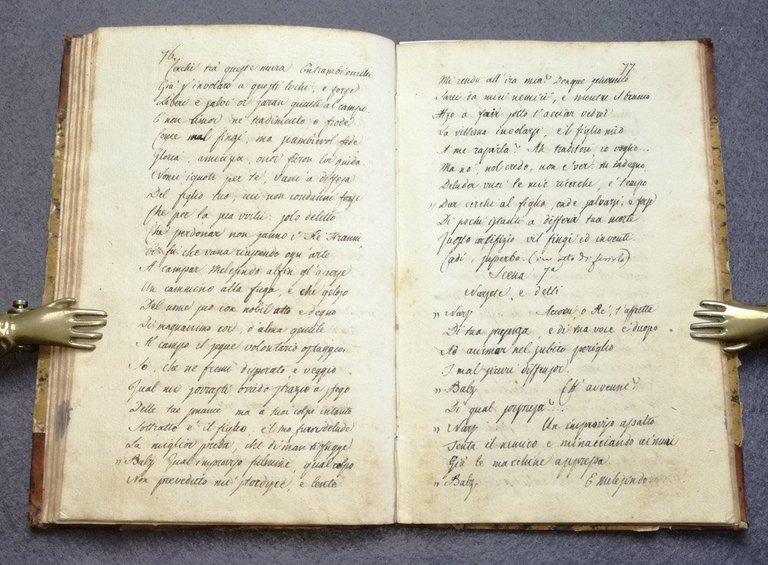 76
Perchè trà queste mura
Già s'involaro a questi lochi, e forse
Liberi e salvi or saran giunti al campo.
E non timor ne tradimento o frode
Come mal fingi, ma scambievol fede
Gloria, amicizia, onor furon lor guida
Nomi ignoti per te. Sani a difesa
Del figlio tuo, cui non condanni forse
Che per la sua virtù: solo delitto
Che perdonar non sanno i Rè Tiranni
che vana riuscendo ogn'arte
A campar Melesindo alfin gl'aperse
Un cammino alla fuga, e che geloso
Del nome suo con nobil atto e degno
Di magnanimo cor, d'alma gentile
Al campo il segue volontario ostaggio.
Sò, che ne fremi disperato e veggio
Qual mi sovrasti orrido strazio a sfogo
Delle tue smanie, ma a tuoi colpi intanto
Sottratto è il figlio, e il tuo furor delude
La miglior preda, che di man ti fugge
" Baby. Qual improvviso fulmine, qual colpo
Non preveduto mi stordisce, e tento
77
Mi rendo all'ira mia? Dunque schernito
Sarei da miei nemici, e mentre il braccio
Alzo a ferir sotto l'acciar vedrei
La vittima involarsi, e il figlio mio
A me rapirla? Ah traditori io voglio...
Ma nò, nol credo, non è ver. Tu indegno
Deluder vuoi le mie ricerche, e tempo
" Dar cerchi al figlio, onde salvarsi, e forse
Di pochi istanti a differir tua morte
Questo artifizio vil fingi ed inventi.
Cadi, superbo. (in atto di ferirlo)
Scena 7a
Narsete, e detti
" Nars. Accorri o Rè, t'affretta
Di tua presenza, e di tua voce è d'uopo
Ad animar nel subito periglio
I mal sicuri diffensor.
" Baby. Ch'avvenne?
Di qual sorpresa?..
" Nars. Un improvviso assalto
Tenta il nemico e minacciando ai muri
Già le macchine appressa
" Baby. E Melesindo